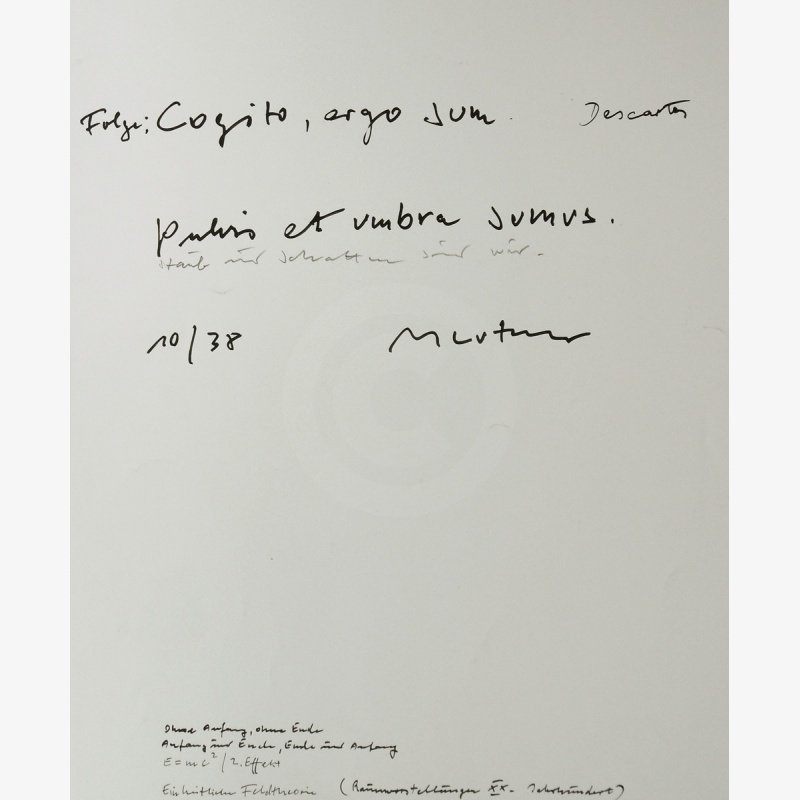 Folge; Cogito, ergo sum. Descartes
Pulvis et umbra sumus.
Staub und Schatten sind wir.
10/38
Ohne Anfang, ohne Ende
Anfang und Ende, Ende und Anfang
E = mc² / 2. Effekt
Einheitliche Feldtheorie (Raumvorstellungen XX. Jahrhundert)